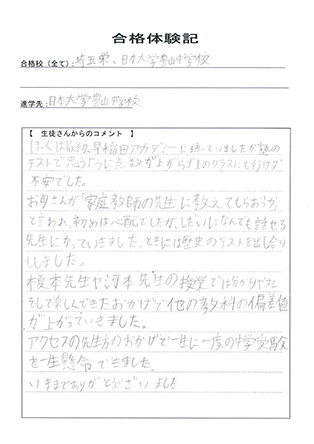 合格体験記
合格校（全て）：埼玉栄、日本大学豊山中学校
進学先：日本大学豊山中学校
【 生徒さんからのコメント 】
ぼくは最初、早稲田アカデミーに通っていましたが塾の
テストで思うように点数が上がらず上のクラスにも行けず
不安でした。
お母さんが「家庭教師の先生に教えてもらおうか」
と言われ、初めは心配でしたが、しだいになんでも話せる
先生になっていきました。ときには歴史のテストを出し合い
もしました。
榎本先生や河本先生の授業では分かりやすく
そして楽しんできたおかげで他の教科の偏差値
が上がっていきました。
アクセスの先生方のおかげで一生に一度の中学受験
を一生懸命できました。
いままでありがとうございました